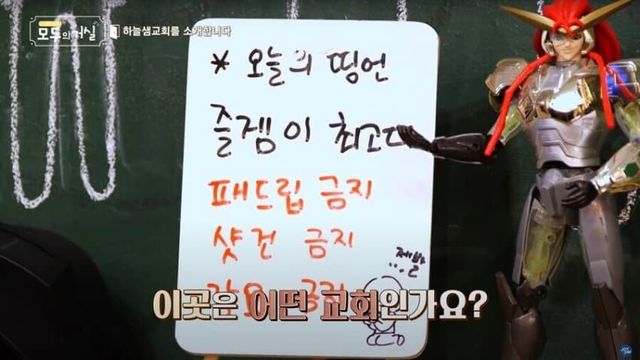 모두의 거실 하늘샘교회를 소개합니다
* 오늘의 띵언
즐겜이 최고다
패드립 금지
샷건 금지
제발
금지
이곳은 어떤 교회인가요?